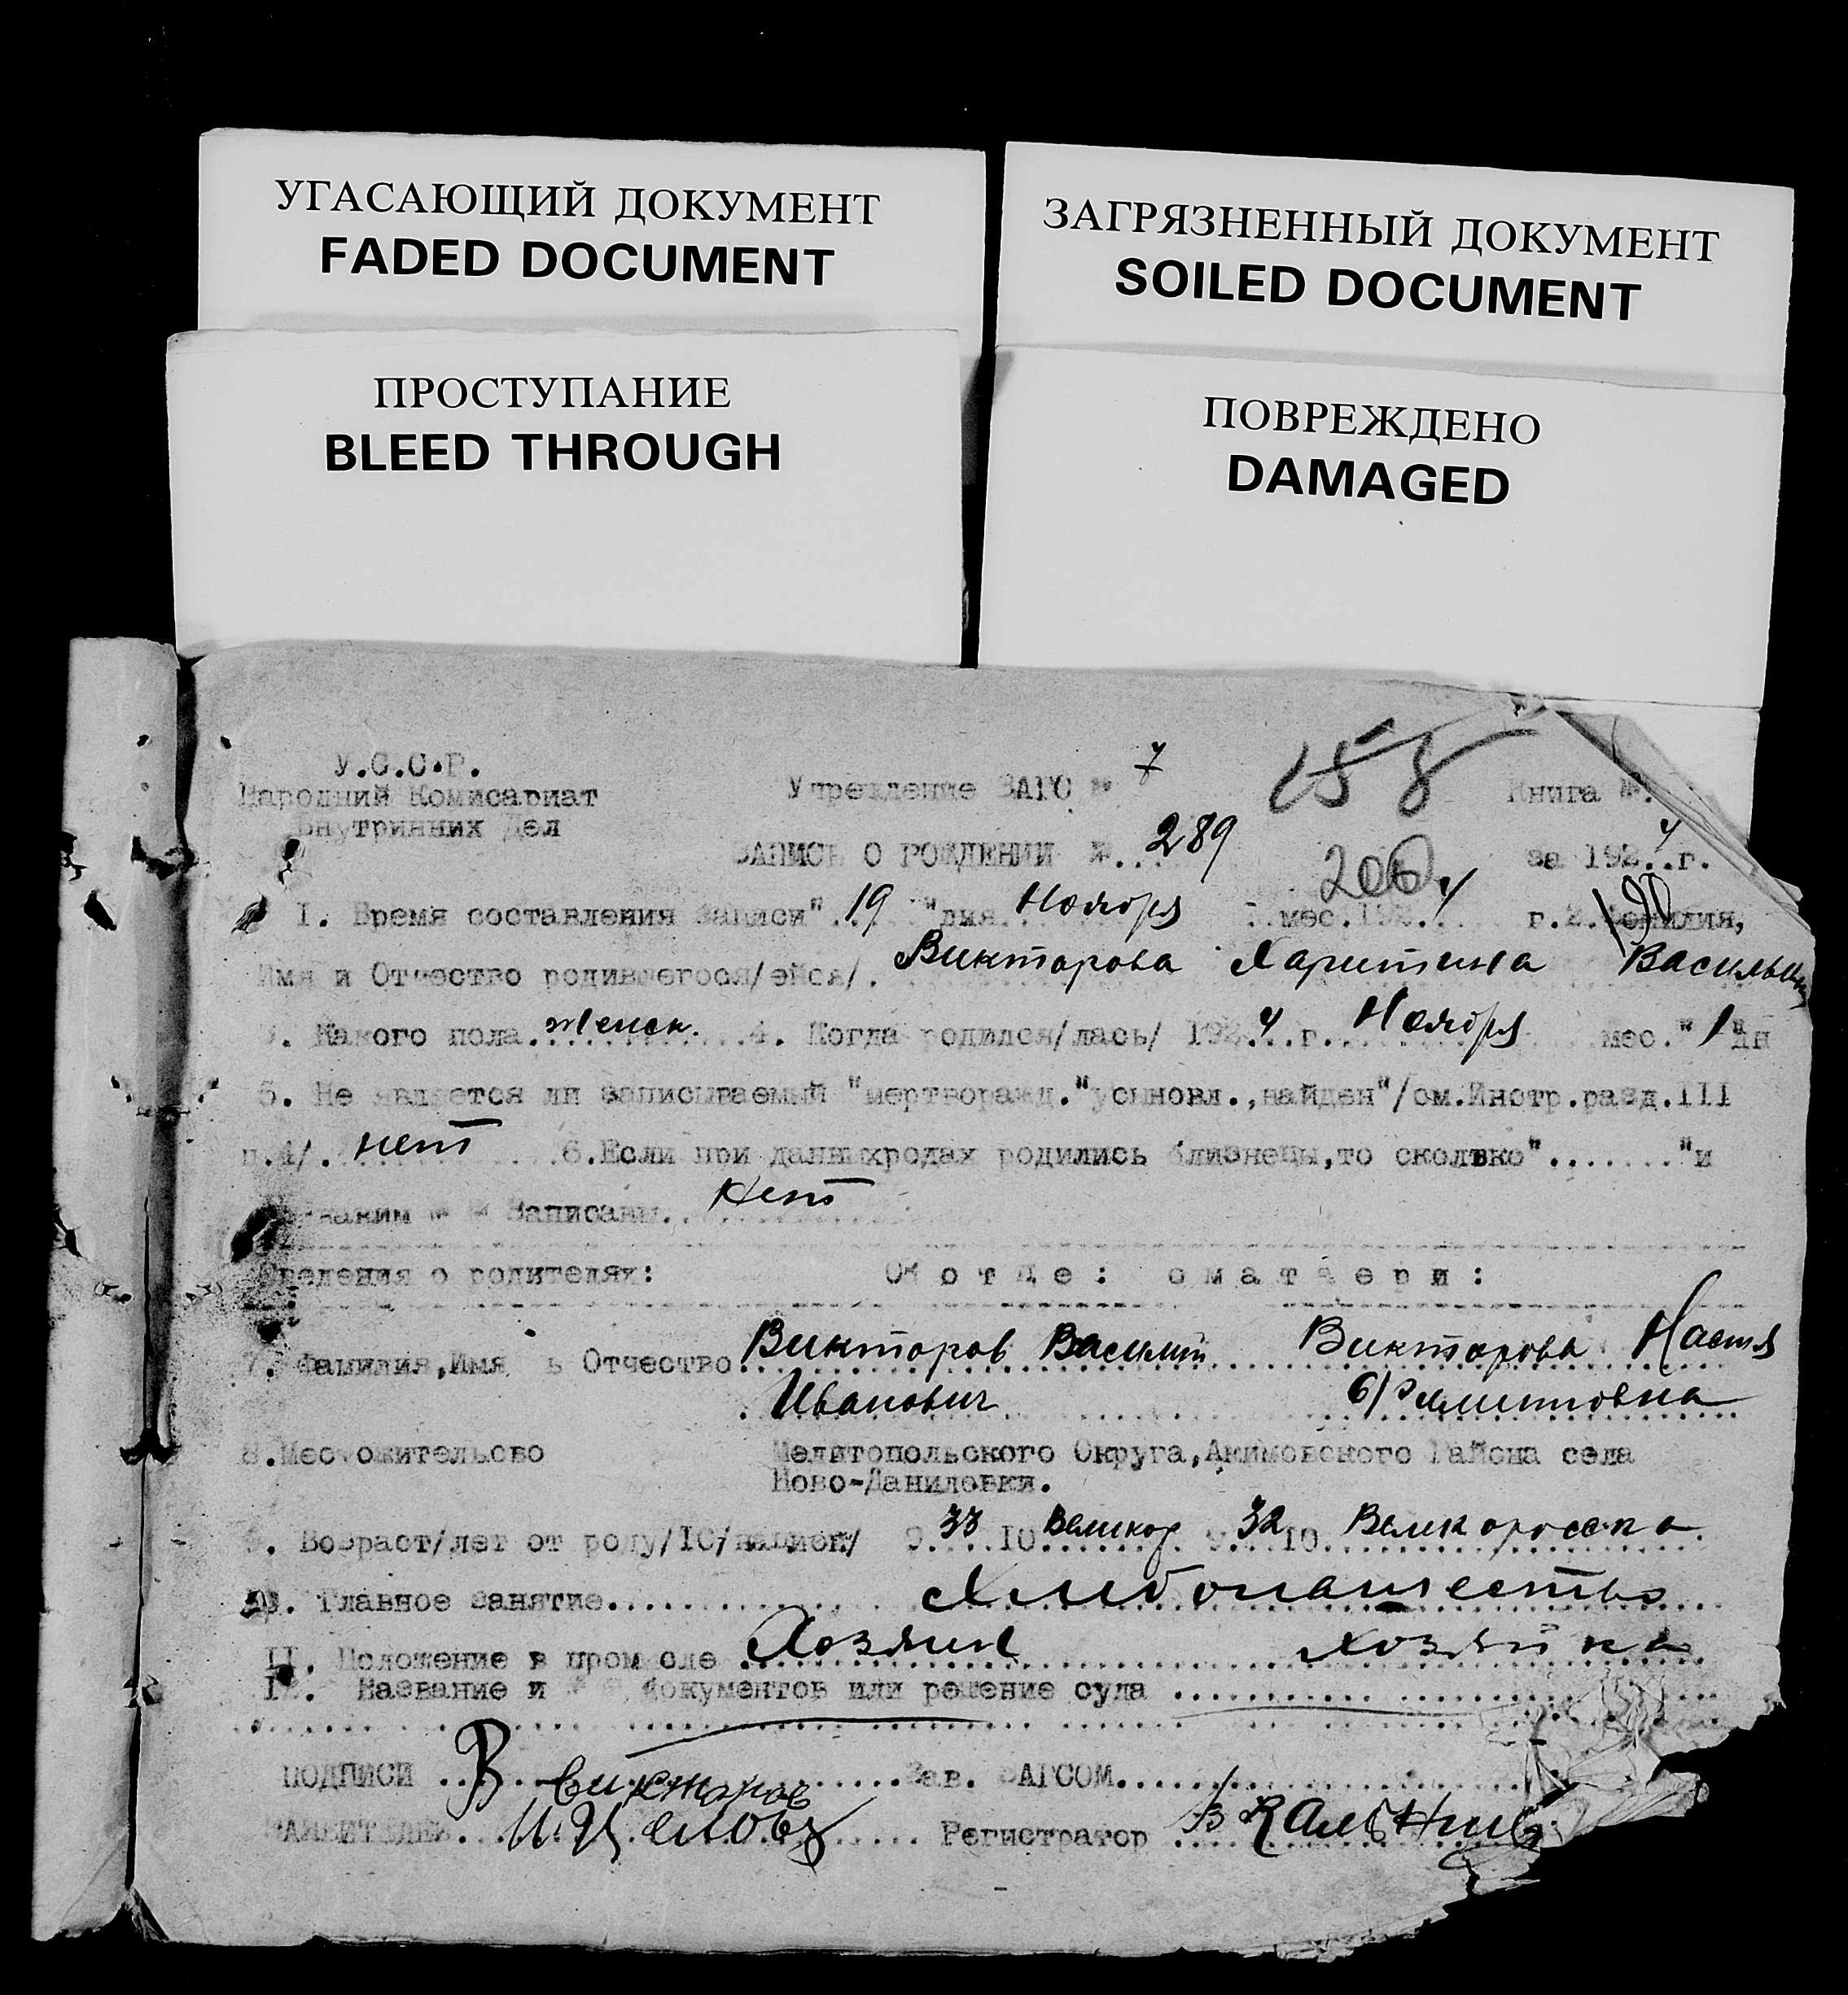 УГАСАЮЩИЙ ДОКУМЕНТ
FADED DOCUMENT
ЗАГРЯЗНЕННЫЙ ДОКУМЕНТ
SOILED DOCUMENT
ПРОСТУПАНИЕ
BLEED THROUGH
ПОВРЕЖДЕНО
DAMAGED
У.С.С.Р.
Народний Комисариат
Внутринних Дел
Учреждение ЗАГС № 7
158
Книга №.
ЗАПИСЬ О РОЖДЕНИИ №... 289
200
за 192.4.г.
190
1. Время составления записи" 19 "дня Ноября мес.192.4 г.2.Фамилия,
Имя и Отчество родившегося/ейся/. Викторова Харитина Васильевн
3. Какого пола. женск. 4. Когда родился/лась/ 192.4.г. Ноября мес." 1 "дн
5. Не является ли записываемый "мертворажд."усыновл.,найден"/см.Инстр.разд.III
п.4/. нет 6.Если при данныхродах родились близнецы,то сколько"......."и
каким № № Записаны. нет
Сведения о родителях: О о т ц е : о м а т е р и :
7. Фамилия,Имя ь Отчество. Викторов Василий Викторова Настя
Иванович
8.Местожительсво Мелитопольского Округа,Акимовского Района села
Ново-Даниловки.
9. Возраст/лет от роду/10/национ/ 9. 33 10 Великор 9. 32 10 Великоросска
Главное занятие. Хлибопашество
11. Положение в пром сле Хозяин хозяйка
12. Название и № № документов или решение суда
ПОДПИСИ В Викторов Зав. ЗАГСОМ.
ЗАЯВИТЕЛЕЙ. Регистратор